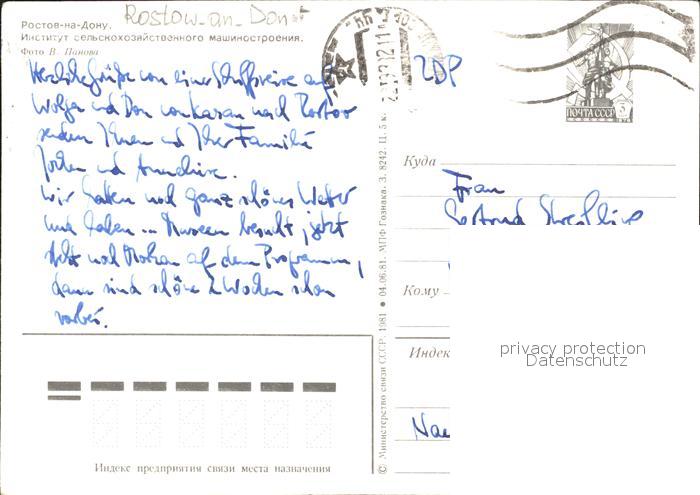 Rostow-an-Don
Ростов-на-Дону.
Институт сельскохозяйственного машиностроения.
Фото В. Панова
Herzliche Grüße von einer Schiffsreise auf
Wolga und Don von Kasan nach Rostov
senden Ihnen und Ihrer Familie
Jochen und Annelise.
Wir hatten noch ganz schönes Wetter
und haben Museen besucht, jetzt
steht noch Moskau auf dem Programm,
dann sind schöne 2 Wochen schon
vorbei.
ПОЧТА СССР
Куда
Frau
Gertrud
Кому
Индек
privacy protection
Datenschutz
Nae
Индекс предприятия связи места назначения
© Министерство связи СССР. 1981 ● 04.06.81. МПФ Гознака. З. 8242. Ц. 5 к.